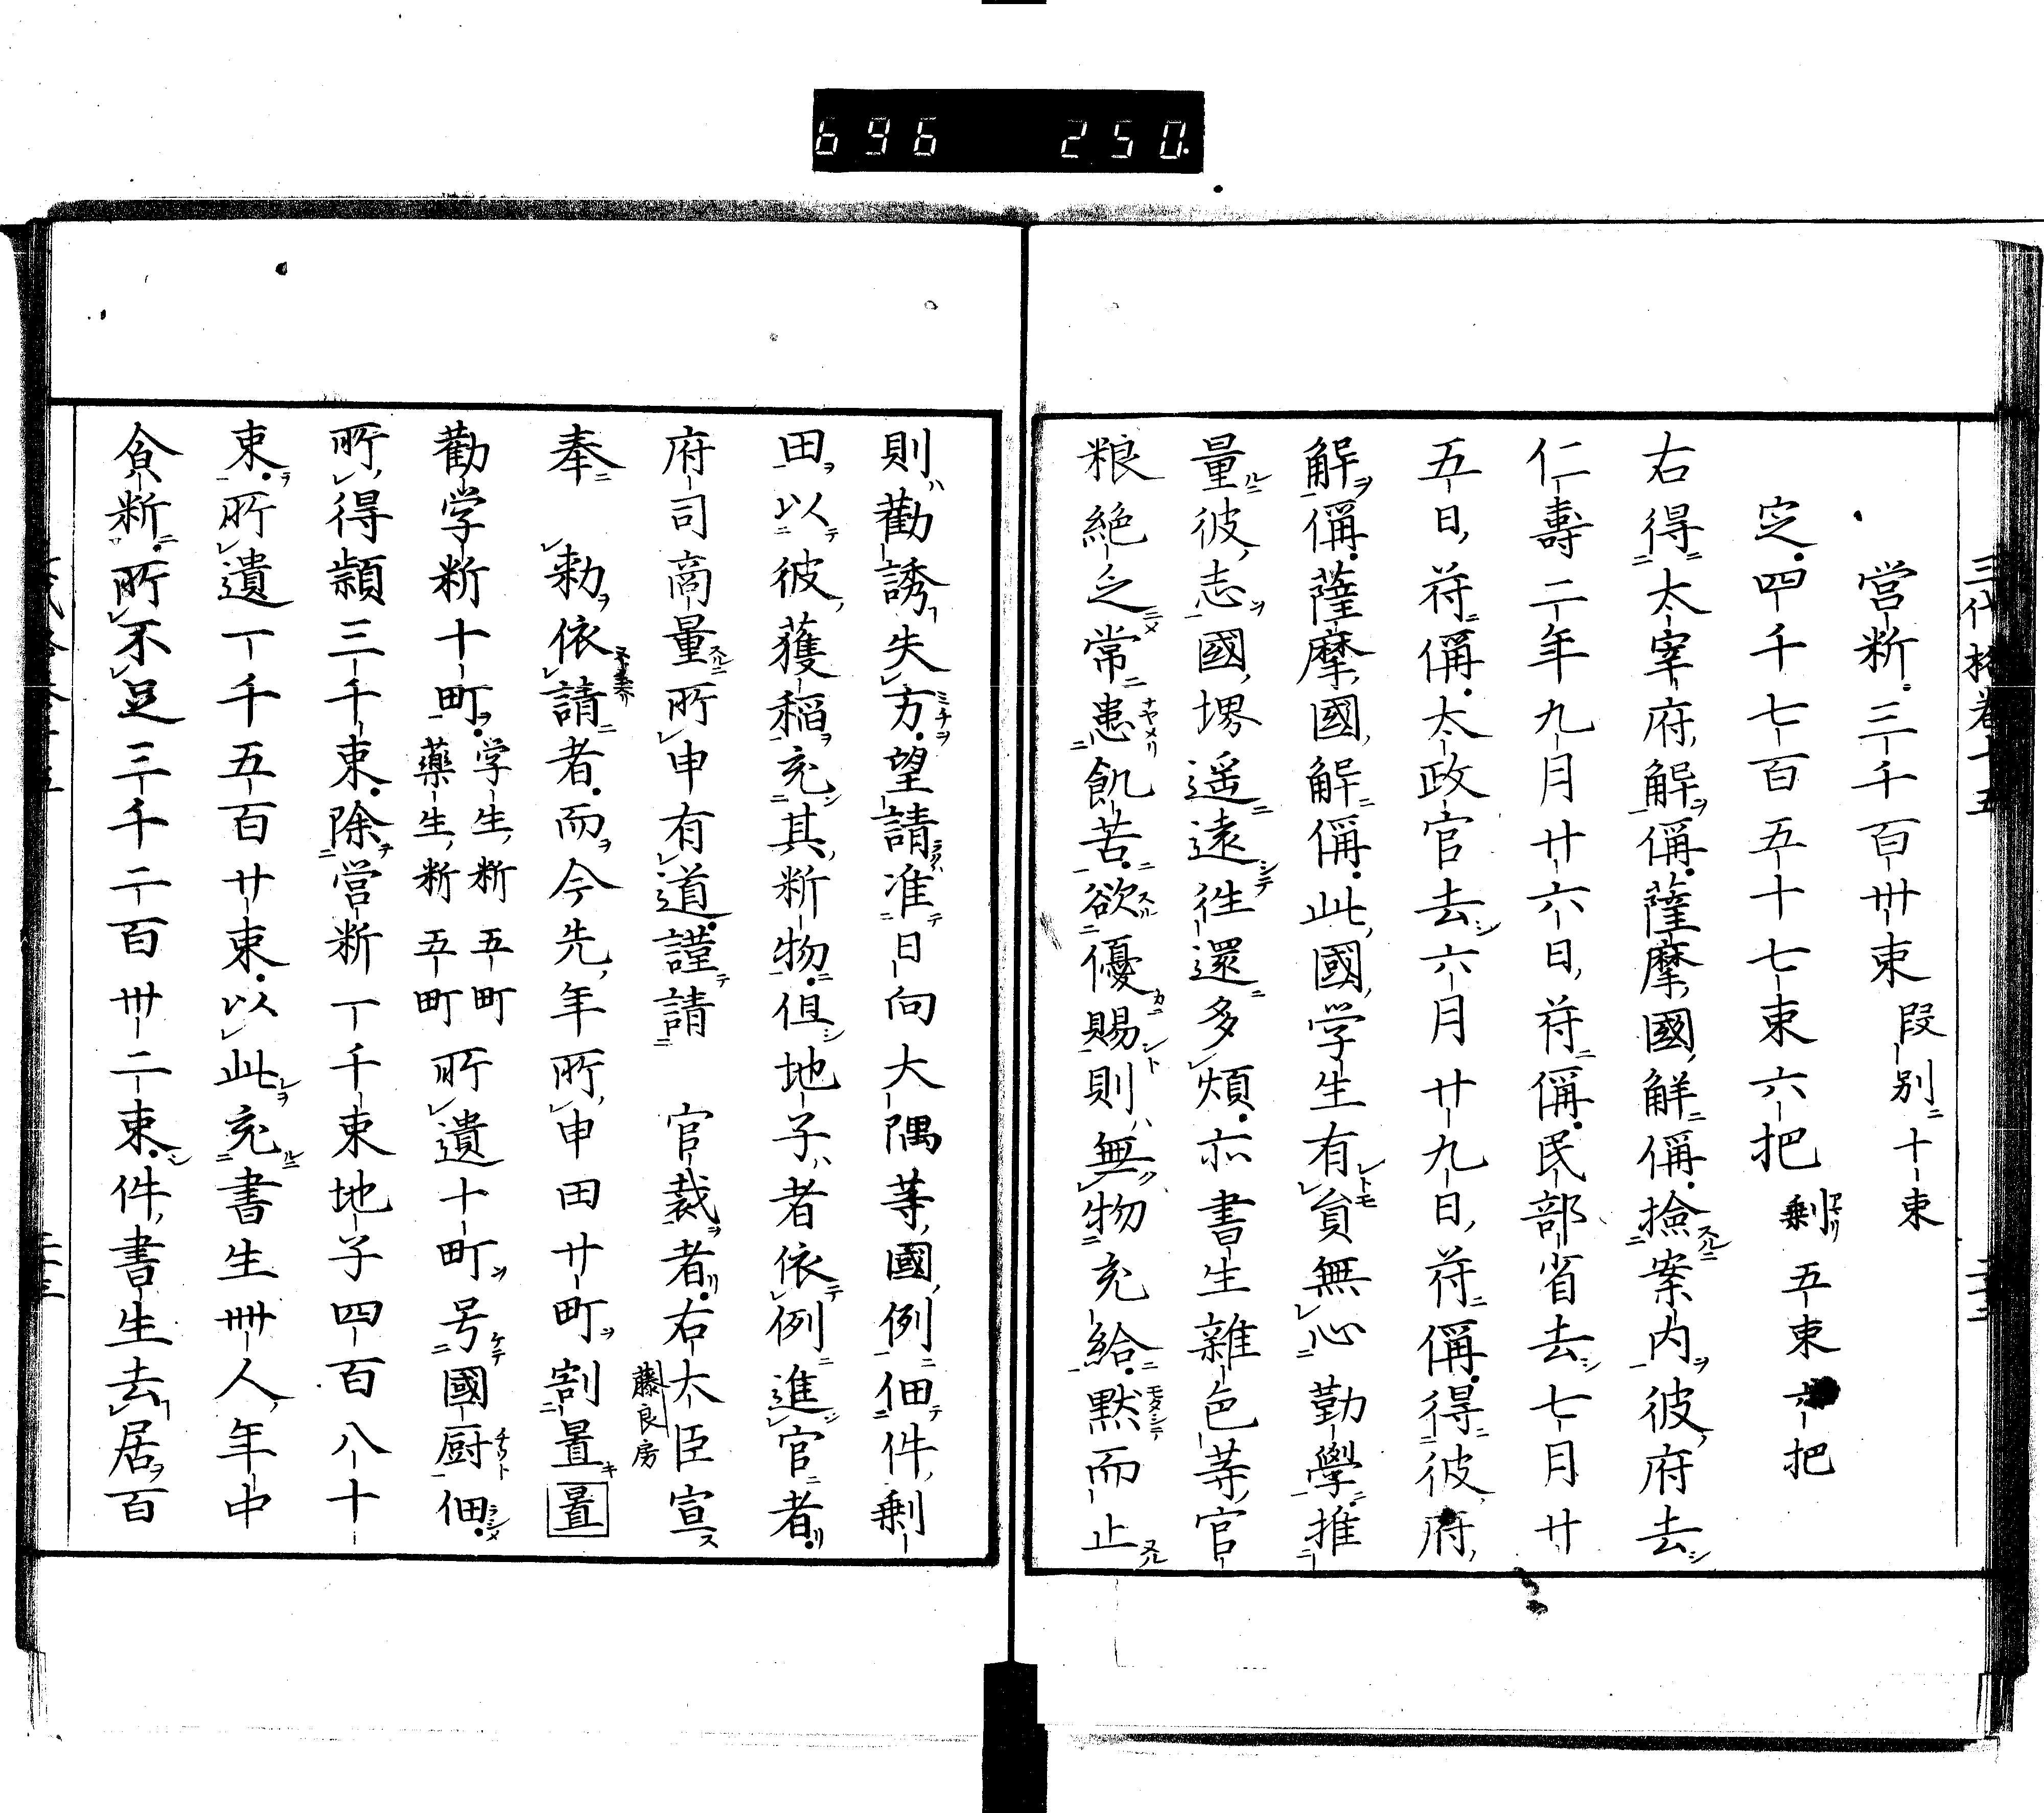 696 250
三代格卷十五
営断三千百卅束 段別十束
定四千七百五十七束六把 剰五束六把
右得太宰府解偁薩摩國解偁撿案内彼府去
仁壽二年九月廿六日符偁民部省去七月廿
五日符偁太政官去六月廿九日符偁得彼府
解偁薩摩國解偁此國学生有貟無心勤學推
量彼志國堺遥遠往還多煩亦書生雜色等官
粮絶乏常患飢苦欲優賜則無物充給黙而止
則勸誘失方望請准日向大隅等國例佃件剰
田以彼獲稲充其断物但地子者依例進官者
府司商量所申有道謹請 官裁者右大臣宣
藤良房
奉 勅依請者而今先年所申田廿町割置置
勸学断十町 学生断五町 薬生断五町 所遺十町号國厨佃
所得頴三千束除営断一千束地子四百八十
束所遺一千五百廿束以此充書生卅人年中
食断所不足三千二百卅二束件書生去居百